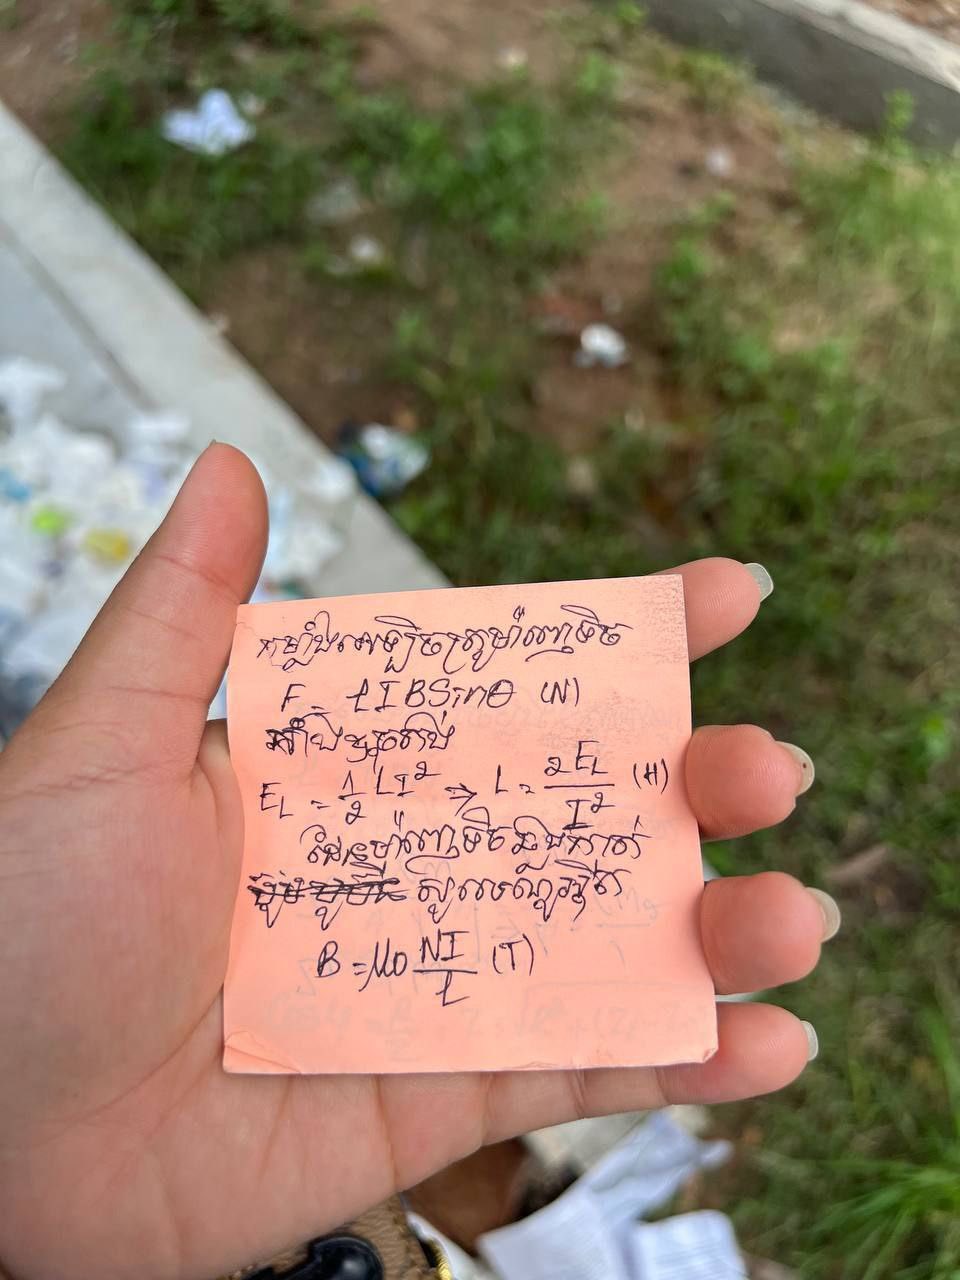 កម្លាំងអេឡិចត្រូម៉ាញេទិច
F = lIBSinθ (N)
កាំងឌុចតង់
E_L = 1/2 LI² ⇒ L = 2E_L/I² (H)
ដែនម៉ាញេទិចឆ្លងកាត់
សូលេណូអ៊ីត
B = μ0 NI/l (T)